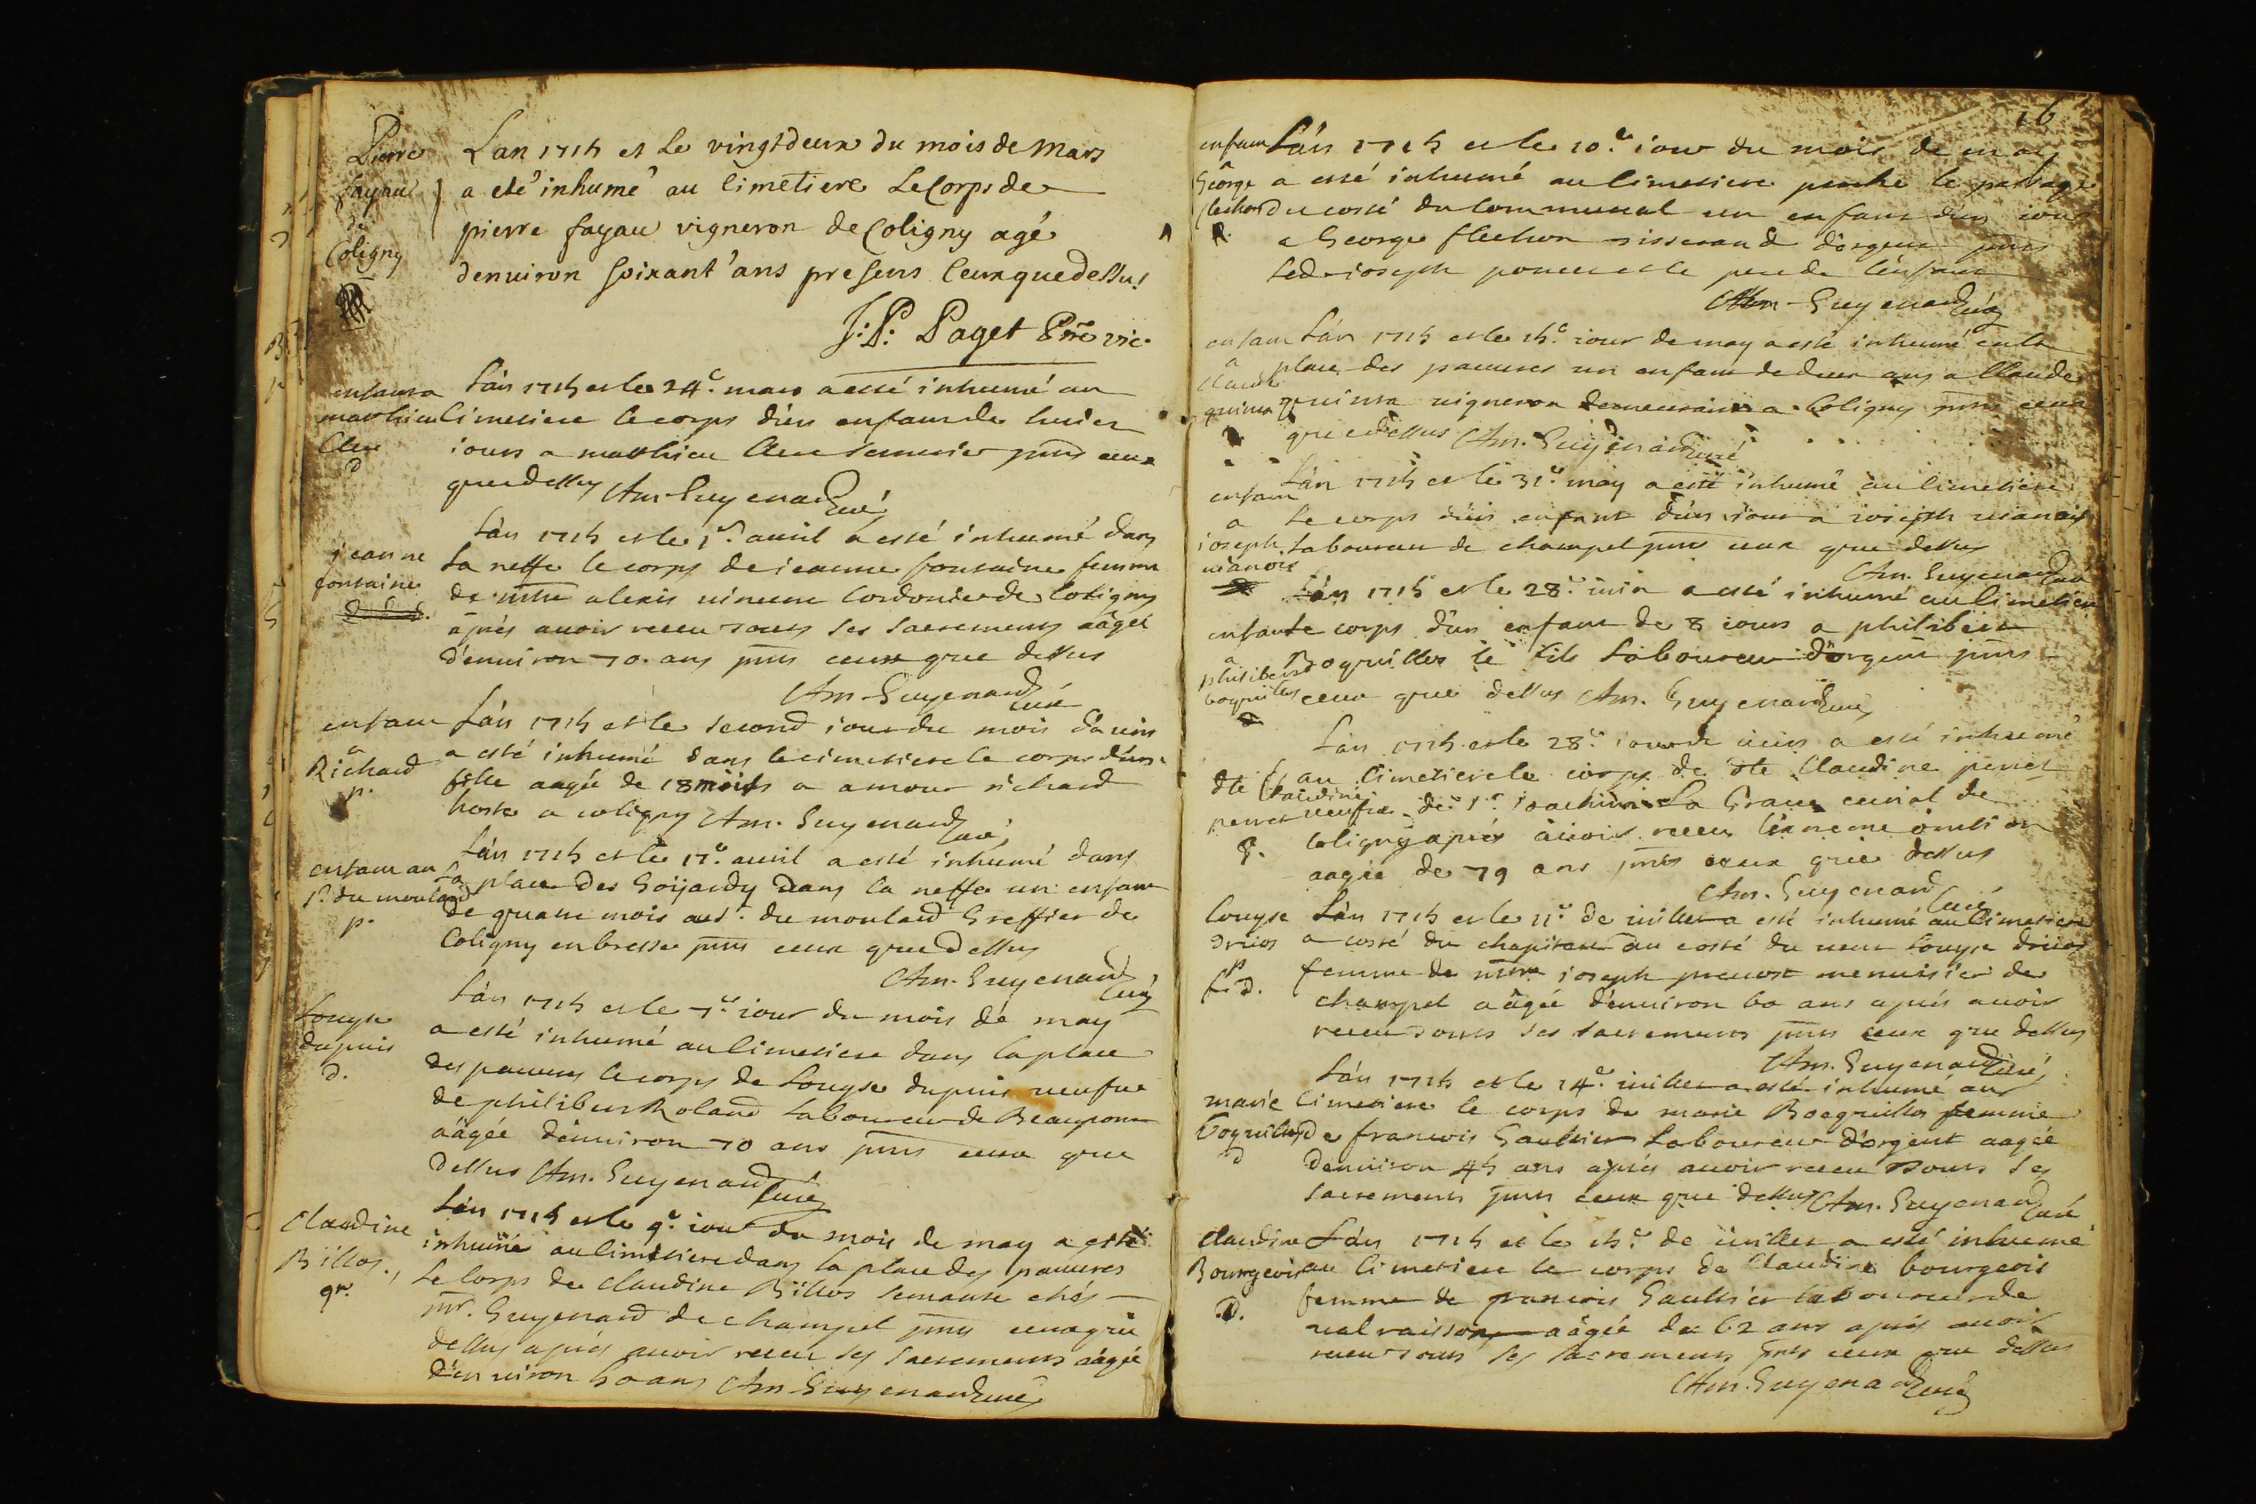 Pierre
fayau
de
Coligny
Lan 1715 et Le vingtdeux du mois de Mars
a eté inhumé au Cimetiere Le Corps de
pierre fayau vigneron de Coligny agé
denuiron soixant'ans presens Ceux que dessus
J: P: Paget Ptre vic.
enfant a
matthieu
Clerc
p
L'an 1715 et le 24e. mars a esté inhumé au
Cimetiere le corps d'un enfant de huict
iours a matthieu Clerc serrurier pnts ceux
que dessus Am. Guyenard Curé
jeanne
fontaine
L'an 1715 et le 1er. auril a esté inhumé dans
La neffe le corps de ieanne fontaine femme
de mtre alexis uincent Cordonier de Coligny
après auoir receu tous ses sacrements aâgée
d'enuiron 70. ans pnts ceux que dessus
Am. Guyenard Curé
enfant
a
Richard
p.
L'an 1715 et le second iour du mois d'auril
a esté inhumé dans le cimetiere le corps d'un
fille aagée de 18 mois a amour richard
hoste a coligny Am. Guyenard Curé
enfant au
Sr. du moulard
p.
L'an 1715 et le 17e. auril a esté inhumé dans
La place des Goÿardy dans la neffe un enfant
de quatre mois au Sr. du moulard Greffier de
Coligny en bresse pnts ceux que dessus
Am. Guyenard Curé
Louyse
dupuis
d.
L'an 1715 et le 7e. iour du mois de may
a esté inhumé au Cimetiere dans la place
des pauures le corps de Louyse dupuis ueufue
de philibert Roland Laboureur de Beaupont
aâgée d'enuiron 70 ans pnts ceux que
dessus Am. Guyenard Curé
Claudine
Billos.
gr.
L'an 1715 et le 9e. iour du mois de may a esté
inhumé au cimetiere dans la place des pauures
Le Corps de Claudine Billos seruante chés
mr. Guyenard de champel pnts ceux que
dessus après auoir receu ses sacrements aâgée
d'enuiron 50 ans Am. Guyenard Curé
16
enfant
George
flechon
p.
L'an 1715 et le 10e. iour du mois de may
a esté inhumé au Cimetiere proche le passage
du costé du Communal un enfant d'un iour
a George flechon tisserand d'orgent pnts
led. ioseph poncet et le pere de l'enfant
Am. Guyenard Curé
enfant
a
Claude
L'an 1715 et le 15e. iour de may a esté inhumé en la
place des pauures un enfant de deux ans a Claude
uigneron demeurant a Coligny pnts ceux
que dessus Am. Guyenard Curé
enfant
a
joseph
uianois
L'an 1715 et le 31e. may a esté inhumé au cimetiere
Le corps d'un enfant d'un iour a ioseph uianois
Laboureur de champel pnts ceux que dessus
Am. Guyenard Curé
enfant
a
philibert
boquillos
L'an 1715 et le 28e. iuin a esté inhumé au Cimetiere
Le corps d'un enfant de 8 iours a philibert
Boquillos le fils Laboureur d'orgent pnts
ceux que dessus Am. Guyenard Curé
dlle Claudine
perret
p.
L'an 1715 et le 28e. iour de iuin a esté inhumé
au Cimetiere le corps de dlle Claudine perret
ueufue de Sr. ioachim La Graue curial de
Coligny après auoir receu l'extreme onction
aagée de 79 ans pnts ceux que dessus
Am. Guyenard Curé
Louyse
Driios
p
f. d.
L'an 1715 et le 11e. de iuillet a esté inhumé au Cimetiere
a costé du chapiteau du costé du uent Louyse driios
femme de mtre ioseph preuost menuisier de
champel aâgée d'enuiron 60 ans après auoir
receu tous ses sacrements pnts ceux que dessus
Am. Guyenard Curé
marie
boquillos
d
L'an 1715 et le 14e. iuillet a esté inhumé au
Cimetiere le corps de marie Boquillos femme
de francois Gauthier Laboureur d'orgent aagée
d'enuiron 45 ans après auoir receu tous ses
sacrements pnts ceux que dessus Am. Guyenard Curé
Claudine
Bourgeois
D.
L'an 1715 et le 15e. de iuillet a esté inhumé
au Cimetiere le corps de Claudine bourgeois
femme de francois Gauthier laboureur de
ualraisson aâgée de 62 ans après auoir
receu tous ses sacrements pnts ceux que dessus
Am. Guyenard Curé